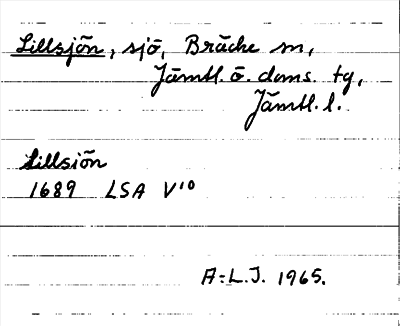 Lillsjön, sjö, Bräcke sn,
Jämtl. ö. doms. tg,
Jämtl. l.
Lillsiön
1689 LSA V¹⁰
A:L.J. 1965.